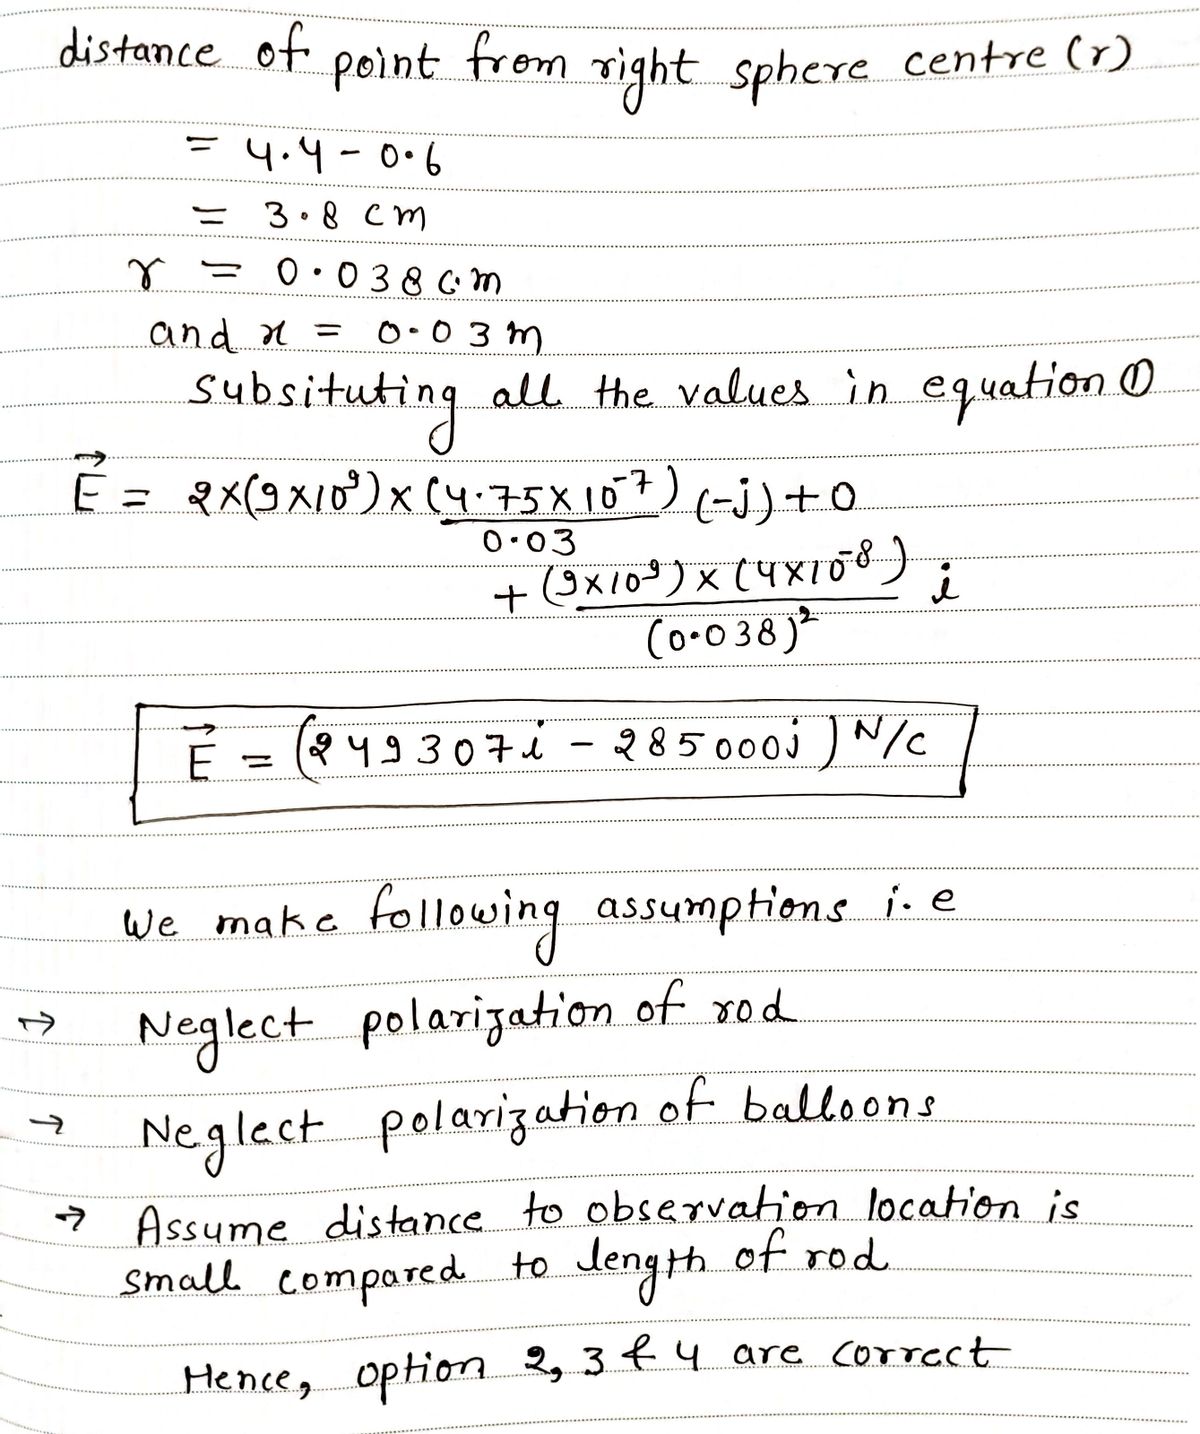 distance of point from right sphere centre (r)
= 4.4 - 0.6
= 3.8 cm
r = 0.038 cm
and x = 0.03 m
Subsituting all the values in equation ①
E⃗ = 2×(9×10⁹)×(4.75×10⁻⁷)/0.03 (-j) + 0
+ (9×10⁹)×(4×10⁻⁸)/(0.038)² i
E⃗ = (249307i - 285000j) N/C
We make following assumptions i.e
→ Neglect polarization of rod
→ Neglect polarization of balloons
→ Assume distance to observation location is
small compared to length of rod
Hence, option 2, 3 & 4 are correct